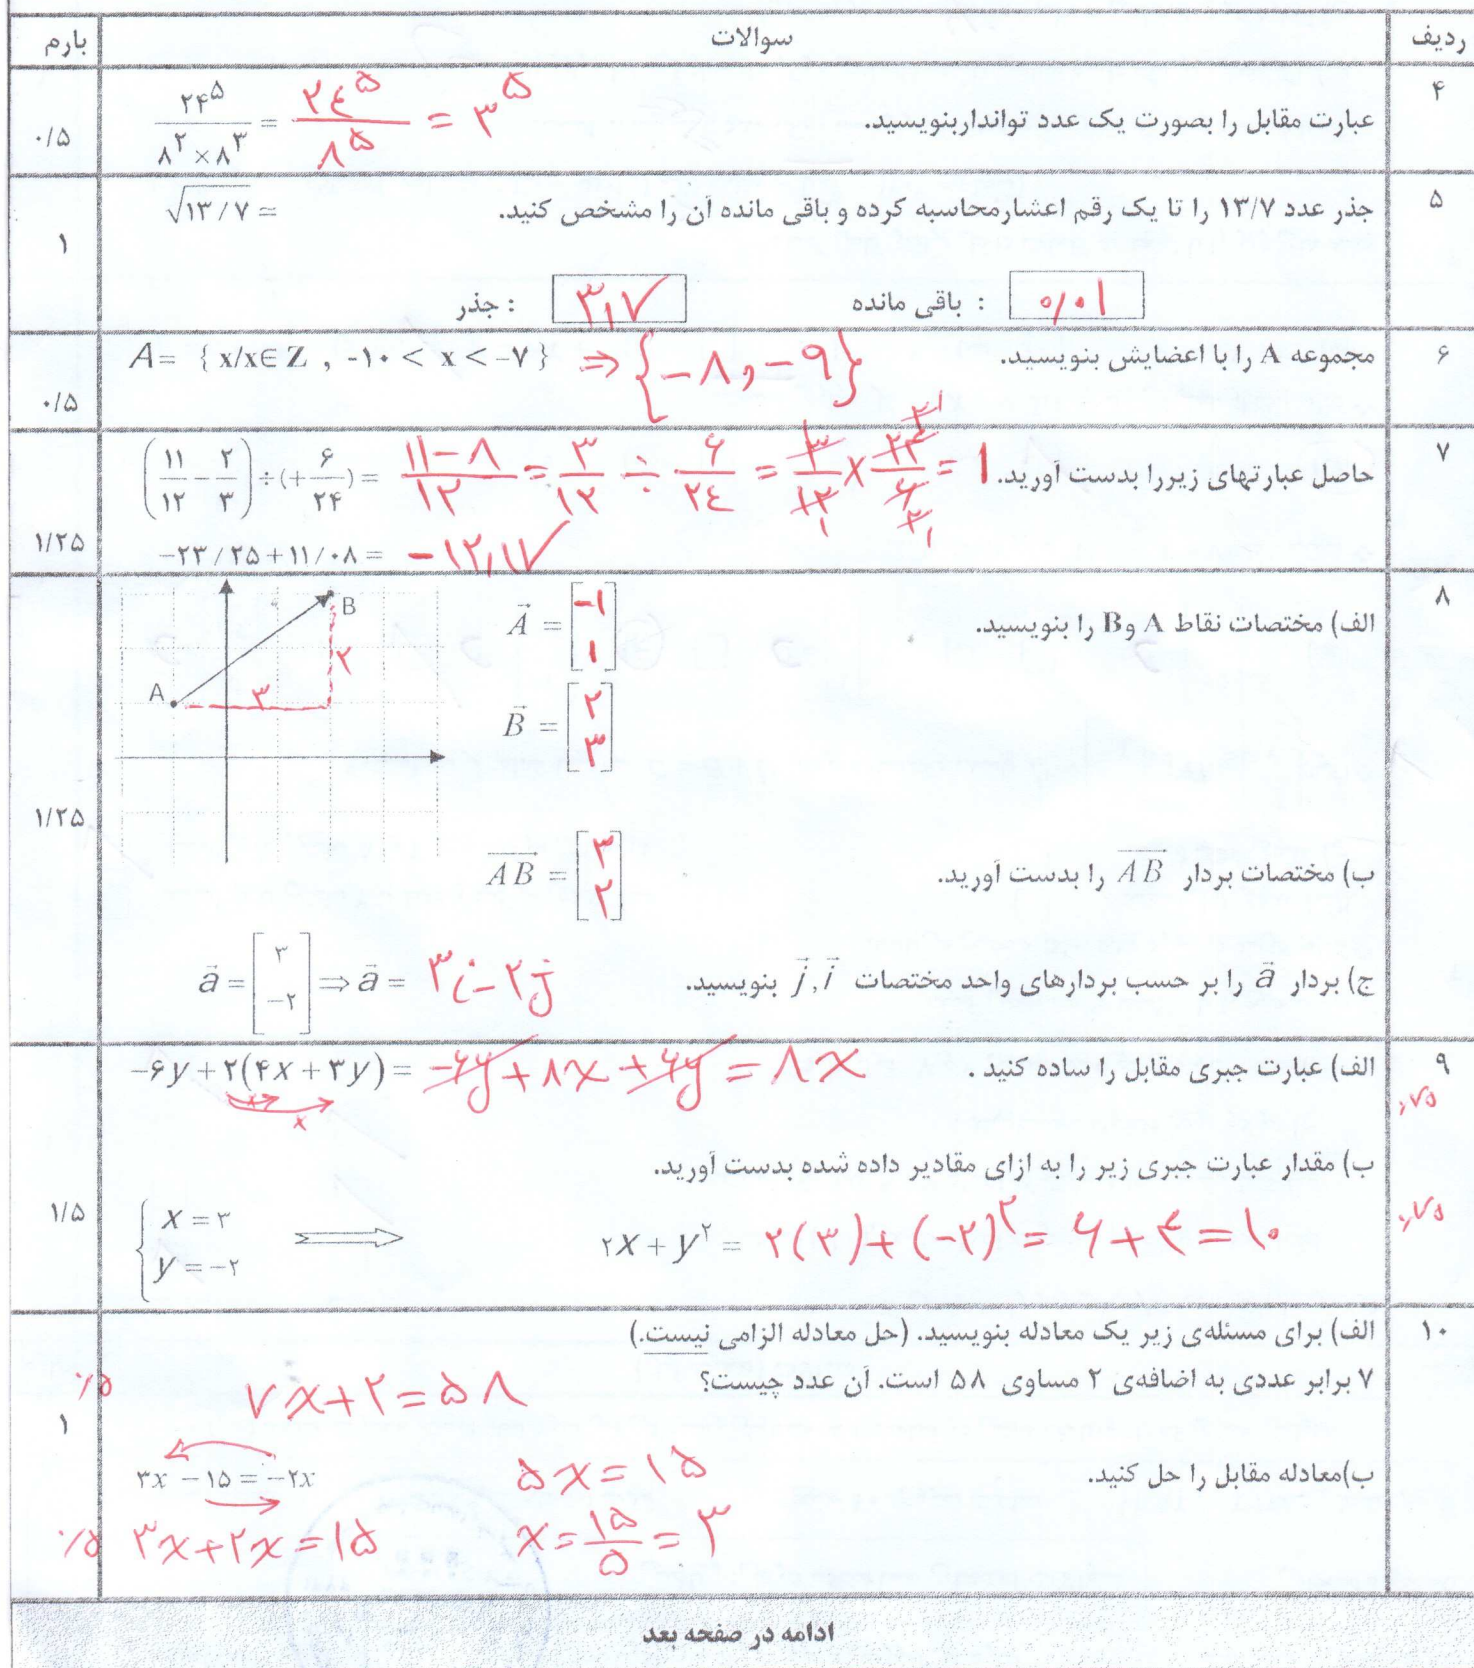 ردیف سوالات بارم
۴ عبارت مقابل را بصورت یک عدد تواندار بنویسید. ۲۴^۵ / (۸^۲ × ۸^۳) = ۲۴^۵ / ۸^۵ = ۳^۵ ۰/۵
۵ جذر عدد ۱۳/۷ را تا یک رقم اعشار محاسبه کرده و باقی مانده آن را مشخص کنید. √۱۳/۷ ≃
۱
جذر : ۳,۷ باقی مانده : ۰/۰۱
۶ مجموعه A را با اعضایش بنویسید. A = { x/x∈Z , -۱۰ < x < -۷ } ⇒ {-۸, -۹}
۰/۵
۷ حاصل عبارتهای زیر را بدست آورید. (۱۱/۱۲ - ۲/۳) ÷ (+۶/۲۴) = (۱۱-۸)/۱۲ = ۳/۱۲ ÷ ۶/۲۴ = ۳/۱۲ × ۲۴/۶ = ۱
-۲۳/۲۵ + ۱۱/۰۸ = -۱۲,۱۷ ۱/۲۵
۸
الف) مختصات نقاط A و B را بنویسید. A = [-۱ ۱]
B = [۲ ۳]
A B ۳ ۲
۱/۲۵
ب) مختصات بردار AB را بدست آورید. AB = [۳ ۲]
ج) بردار a را بر حسب بردارهای واحد مختصات i , j بنویسید. a = [۳ -۲] ⇒ a = ۳i - ۲j
۹ الف) عبارت جبری مقابل را ساده کنید . -۶y + ۲(۴x + ۳y) = -۶y + ۸x + ۶y = ۸x
۰,۷۵
ب) مقدار عبارت جبری زیر را به ازای مقادیر داده شده بدست آورید.
{ x = ۳ y = -۲ ⟹ ۲x + y^۲ = ۲(۳) + (-۲)^۲ = ۶ + ۴ = ۱۰
۰,۷۵ ۱/۵
۱۰ الف) برای مسئله‌ی زیر یک معادله بنویسید. (حل معادله الزامی نیست.)
۷ برابر عددی به اضافه‌ی ۲ مساوی ۵۸ است. آن عدد چیست؟
۷x + ۲ = ۵۸ ۰/۵
۱
ب) معادله مقابل را حل کنید. ۳x - ۱۵ = -۲x ۵x = ۱۵
۳x + ۲x = ۱۵ x = ۱۵/۵ = ۳ ۰/۵
ادامه در صفحه بعد